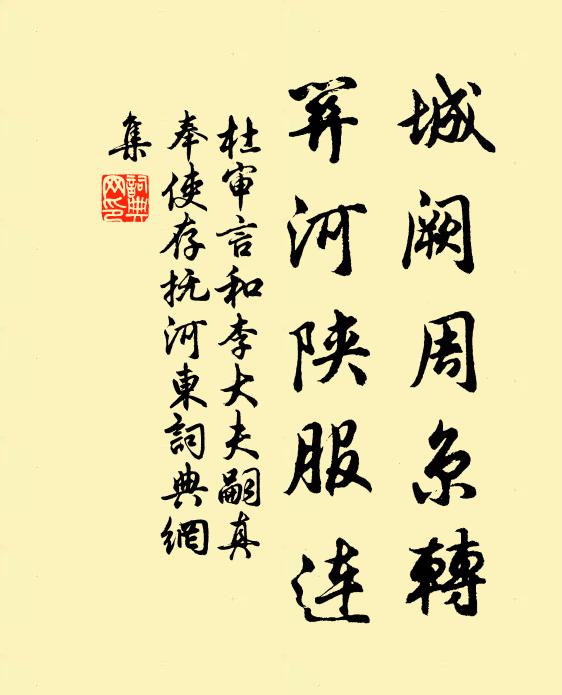 城阙周京轉
关河陕服連
杜审言和李大夫嗣真
奉使存抚河東詞典網
集
詞典
网印